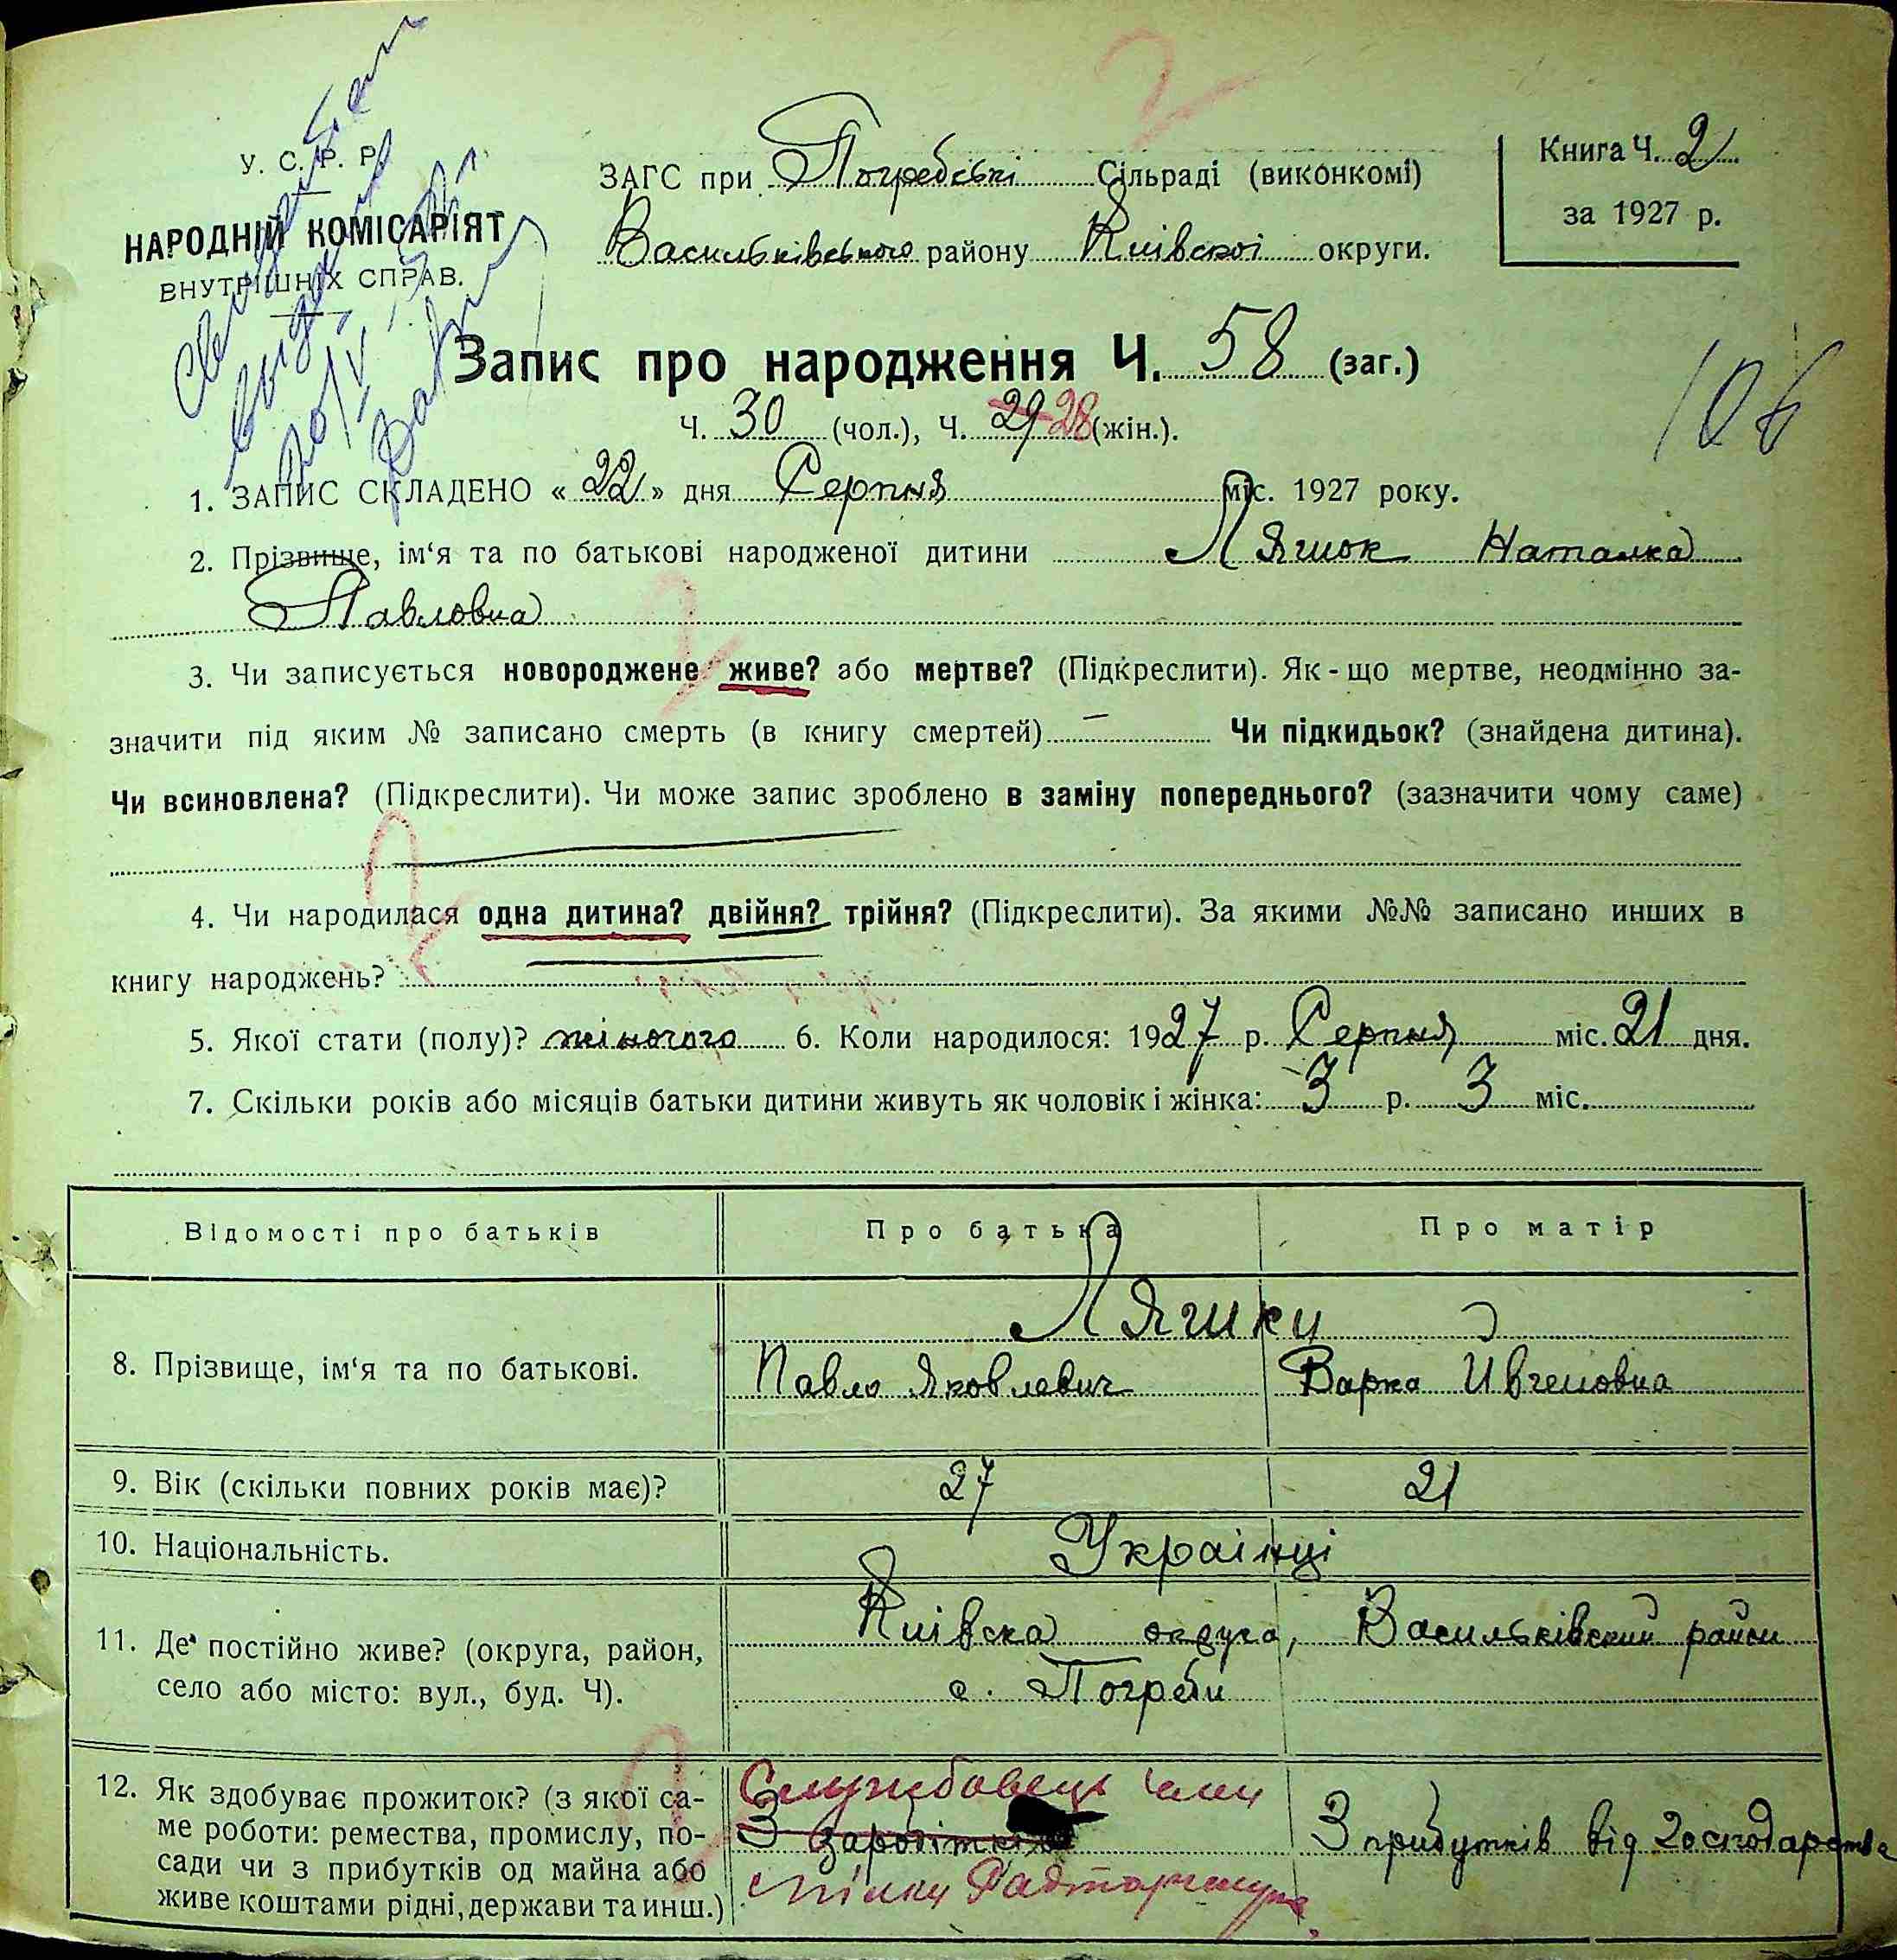 У. С. Р. Р.
НАРОДНІЙ КОМІСАРІЯТ
ВНУТРІШНІХ СПРАВ.
ЗАГС при Погребські Сільраді (виконкомі)
Васильківського району Київскої округи.
Книга Ч. 2
за 1927 р.
Запис про народження Ч. 58 (заг.)
Ч. 30 (чол.), Ч. 29 28 (жін.).
106
1. ЗАПИС СКЛАДЕНО « 22 » дня Серпня міс. 1927 року.
2. Прізвище, ім‘я та по батькові народженої дитини Лягшок Наталка
Павловна
3. Чи записується новороджене живе? або мертве? (Підкреслити). Як - що мертве, неодмінно за-
значити під яким № записано смерть (в книгу смертей) — Чи підкидьок? (знайдена дитина).
Чи всиновлена? (Підкреслити). Чи може запис зроблено в заміну попереднього? (зазначити чому саме)
4. Чи народилася одна дитина? двійня? трійня? (Підкреслити). За якими №№ записано инших в
книгу народжень?
5. Якої стати (полу)? жіночого 6. Коли народилося: 1927 р. Серпня міс. 21 дня.
7. Скільки років або місяців батьки дитини живуть як чоловік і жінка: 3 р. 3 міс.
Відомості про батьків Про батька Про матір
8. Прізвище, ім‘я та по батькові.
Павло Яковлевич Варка Ивгеновна
9. Вік (скільки повних років має)? 27 21
10. Національність. Українці
11. Де постійно живе? (округа, район,
село або місто: вул., буд. Ч).
Київска округа, Васильківский район
с. Погреби
12. Як здобуває прожиток? (з якої са-
ме роботи: ремества, промислу, по-
сади чи з прибутків од майна або
живе коштами рідні, держави та инш.)
Службовець член
З заробітків
спілки Радторгслуж.
З прибутків від господарства